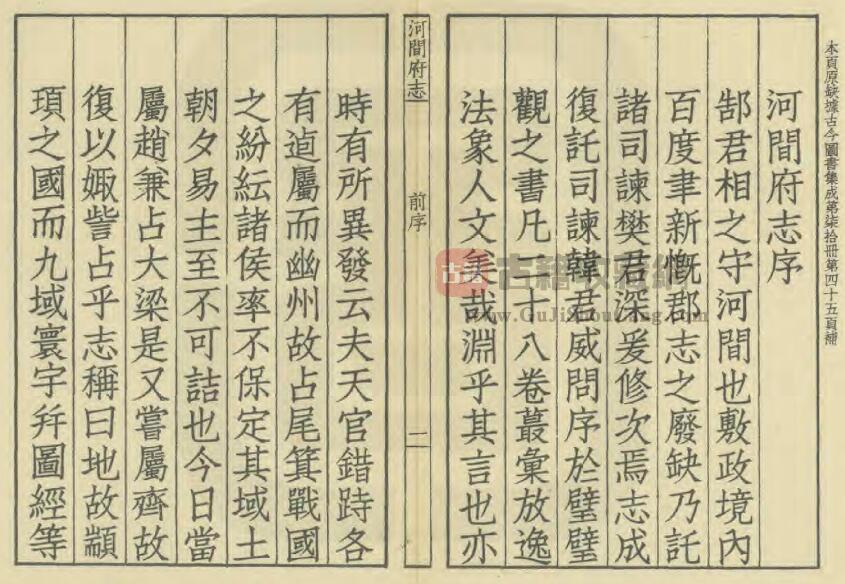 本頁原缺據古今圖書集成第柒拾冊第四十五頁補
河間府志序
郜君相之守河間也敷政境內
百度聿新慨郡志之廢缺乃託
諸司諫樊君深爰修次焉志成
復託司諫韓君威問序於璧璧
觀之書凡二十八卷蕞彙放逸
法象人文羙哉淵乎其言也亦
河間府志
前序
二
時有所異發云夫天官錯跱各
有逌屬而幽州故占尾箕戰國
之紛紜諸侯率不保定其域土
朝夕易主至不可詰也今日當
屬趙兼占大梁是又嘗屬齊故
復以娵訾占乎志稱曰地故顓
頊之國而九域寰宇幷圖經等
古籍
古籍收藏網
www.GuJiShouCang.com